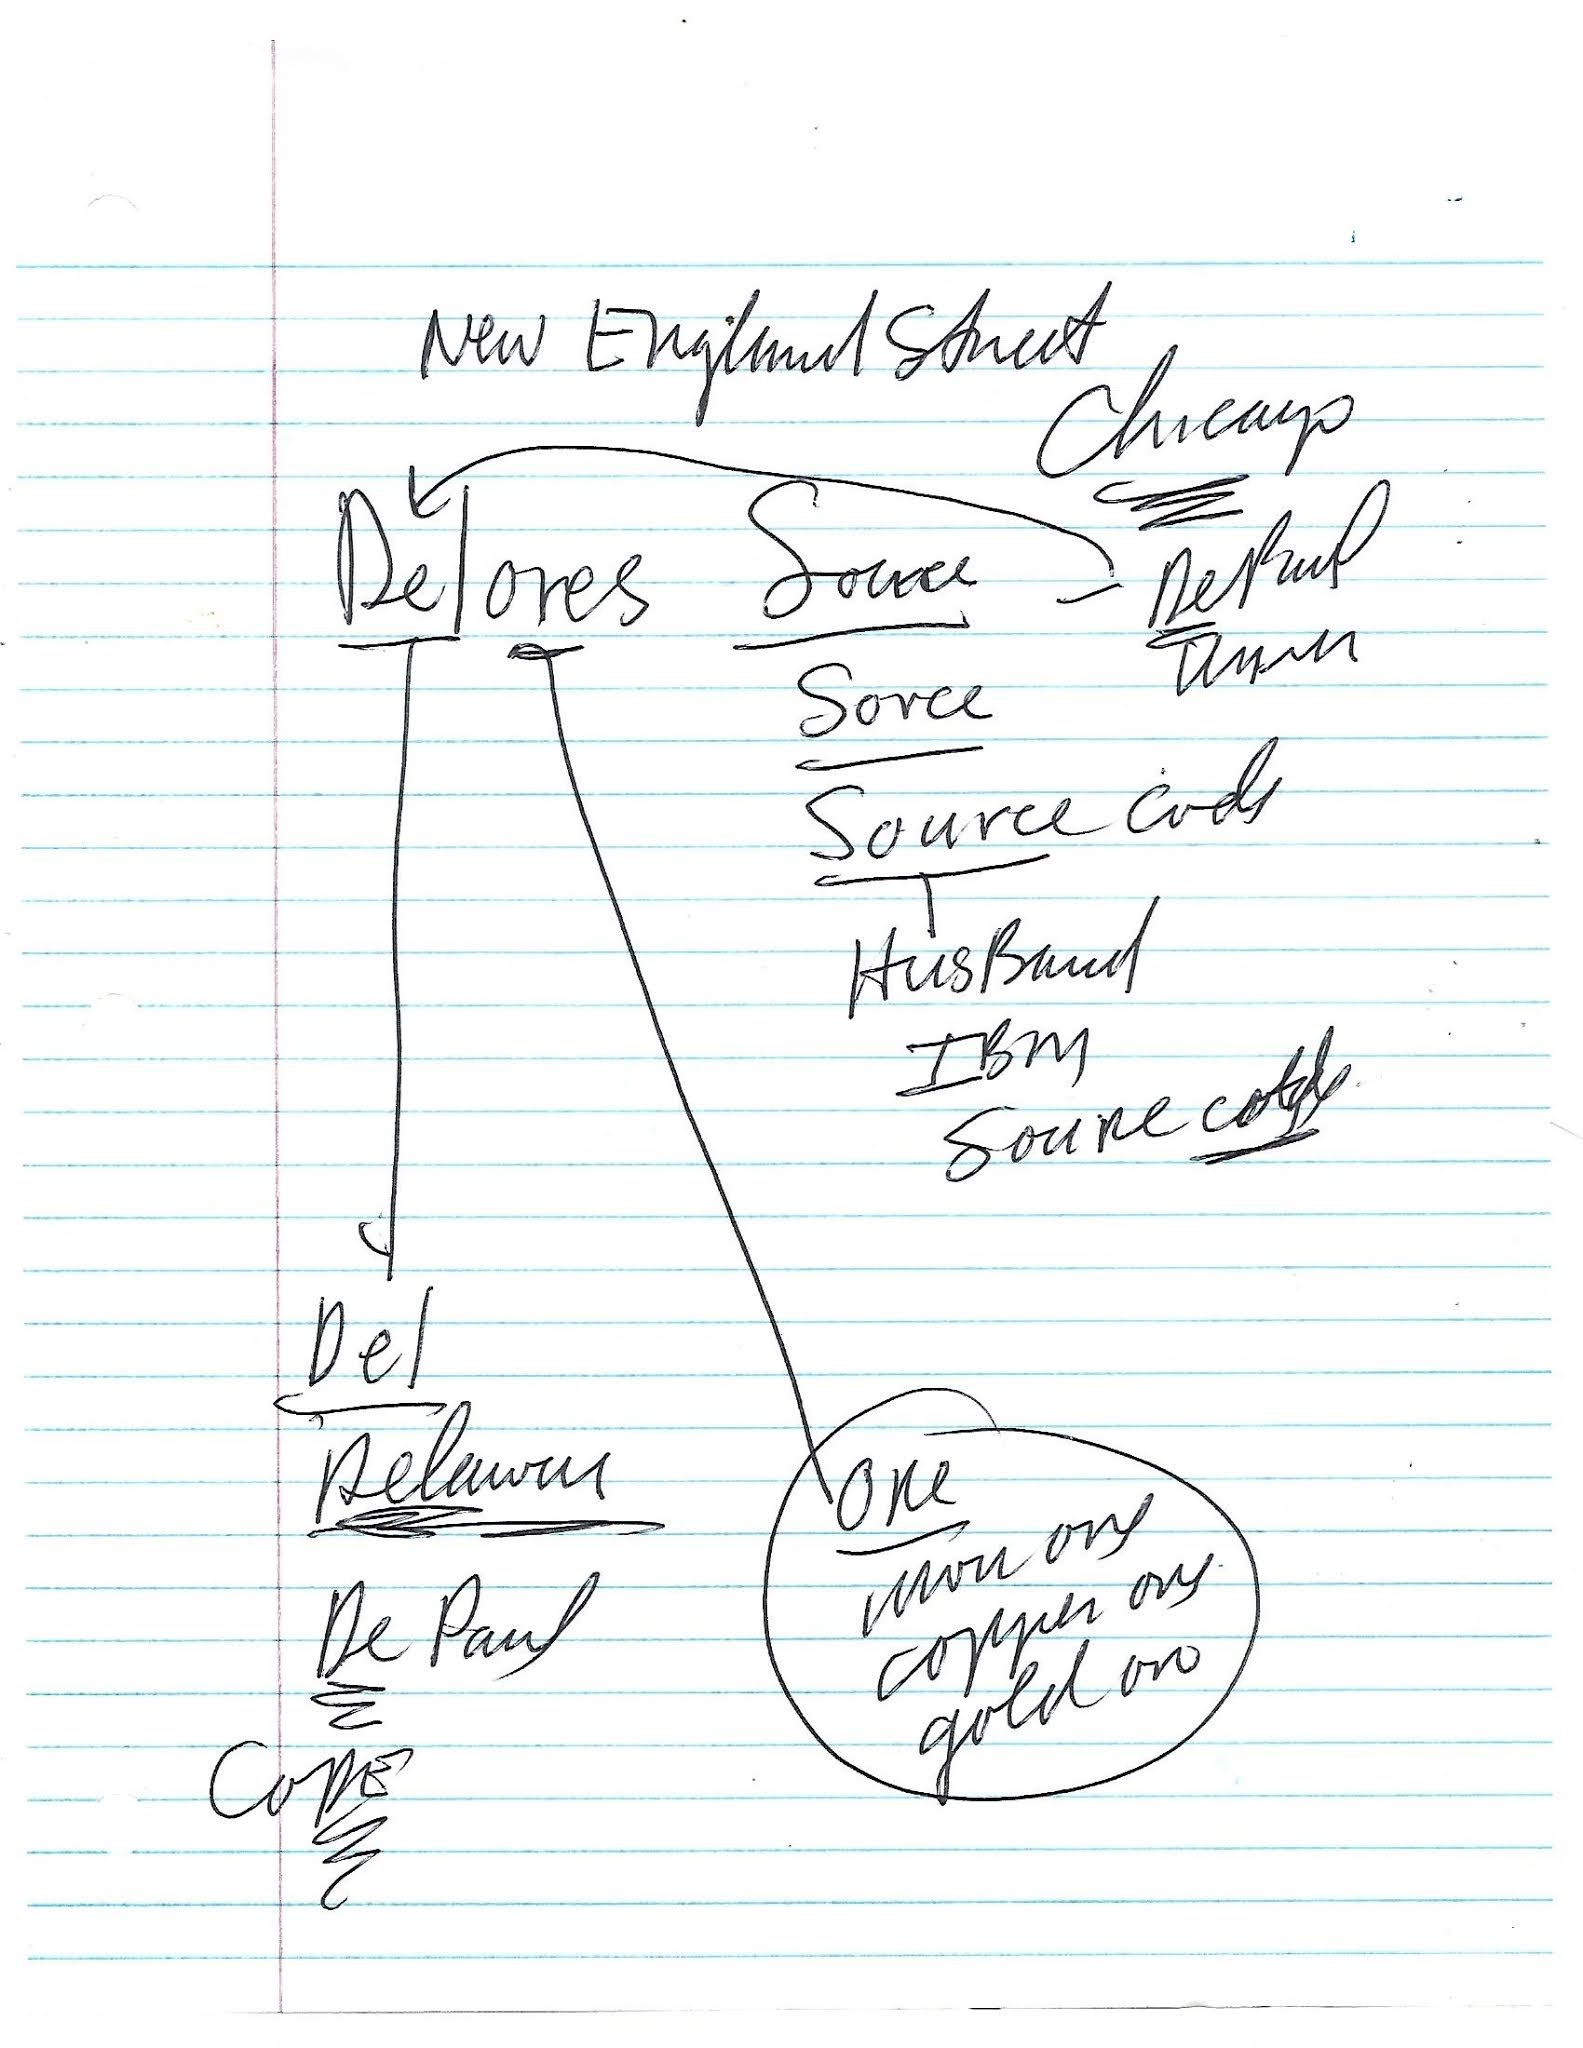 New England Street
Chicago
Delores Source
DePaul
Sorce
Source Code
HusBand
IBM
Source code
Del
Delaware
De Paul
Cope
ore
iron ore
copper ore
gold ore